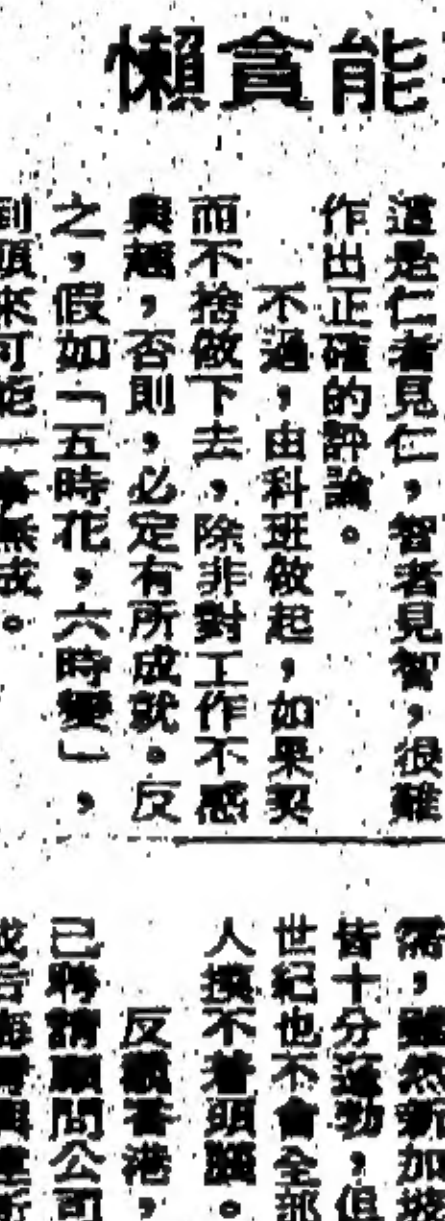 能貪懶
這是仁者見仁，智者見智，很難
作出正確的評論。
不過，由科班做起，如果契
而不捨做下去，除非對工作不感
興趣，否則，必定有所成就。反
之，假如「五時花，六時變」，
到頭來可能一事無成。
雖然新加坡
皆十分蓬勃，但
世紀也不會全部
人摸不着頭腦。
反觀香港，
已聘請顧問公司